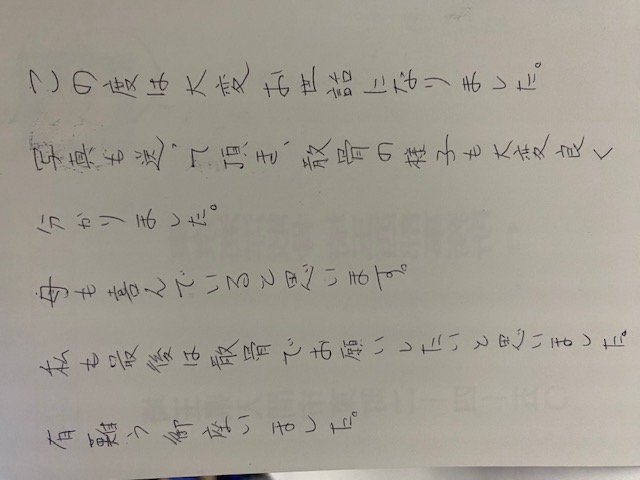 この度は大変お世話になりました。
写真も送って頂き、散骨の様子も大変良く
分かりました。
母も喜んでいると思います。
私も最後は散骨でお願いしたいと思いました。
有難う御座いました。